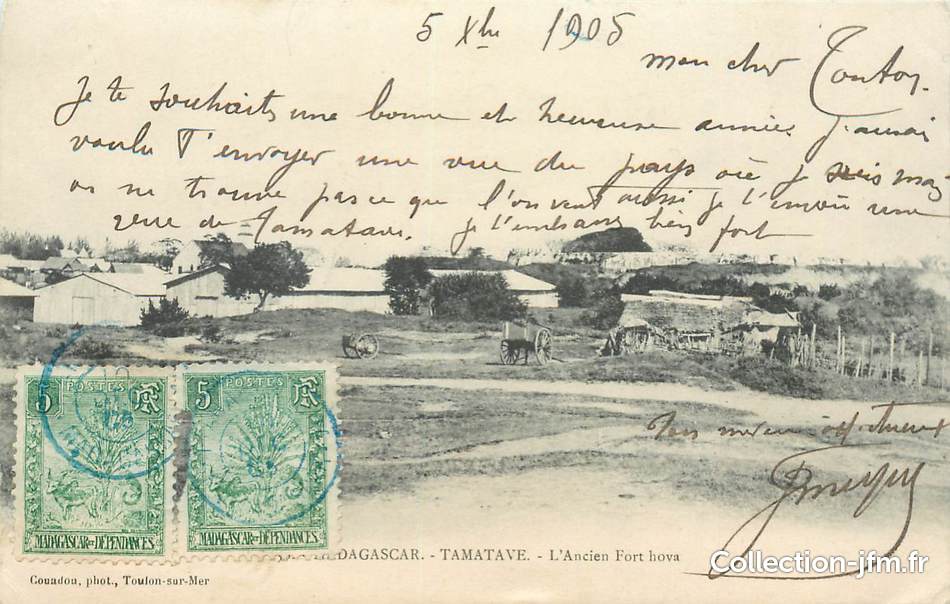 5 Xbre 1905
mon cher Tonton.
Je te souhaits une bonne et heureuse année, j'aurai
voulu t'envoyer une vue du pays où je suis mais
on ne trouve pas ce que l'on veut aussi je t'envoie une
vue de Tamatave. je t'embrasse bien fort
Ton neveu affectueux
5 POSTES RF
5 POSTES RF
MADAGASCAR ET DÉPENDANCES
MADAGASCAR ET DÉPENDANCES
MADAGASCAR. - TAMATAVE. - L'Ancien Fort hova
Couadou, phot., Toulon-sur-Mer
Collection-jfm.fr